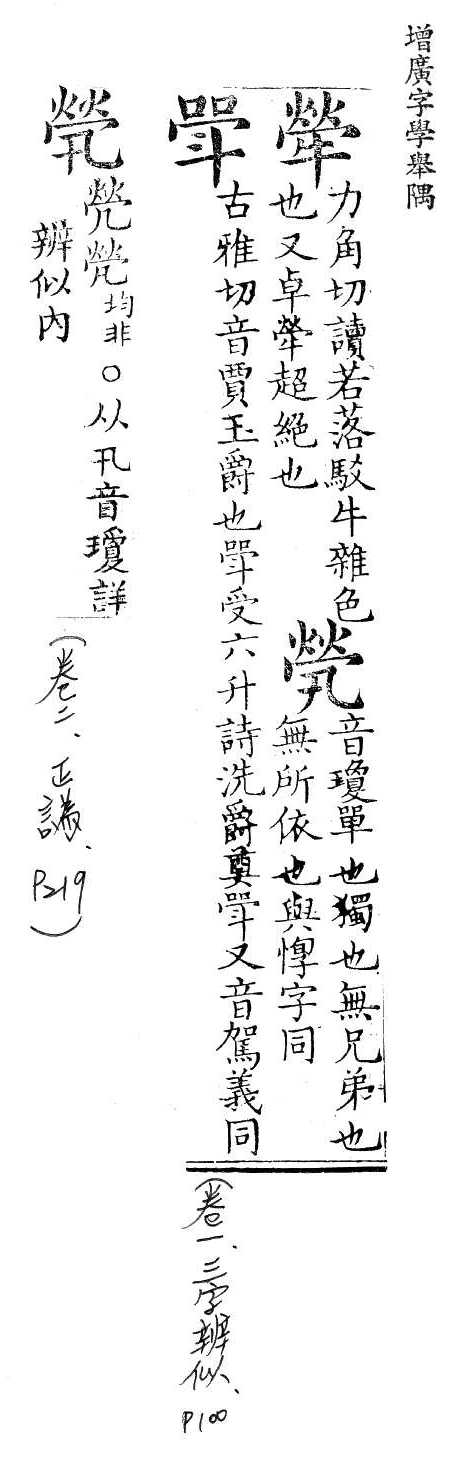 增廣字學舉隅
犖
力角切讀若落駁牛雜色
也又卓犖超絕也
煢
音瓊單也獨也無兄弟也
無所依也與惸字同
斝
古雅切音賈玉爵也斝受六升詩洗爵奠斝又音駕義同
(卷一、三字辨似、P100
煢
焭㷀均非○从卂音瓊詳
辨似內
(卷二、正譌、P219)